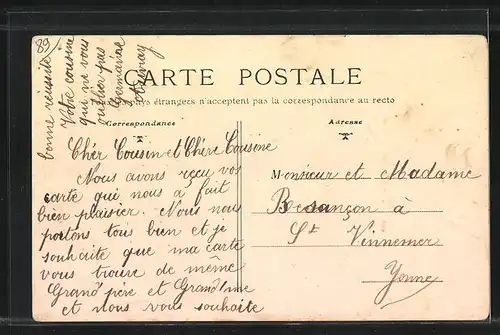 89
CARTE POSTALE
pays étrangers n'acceptent pas la correspondance au recto
Correspondance
Adresse
Chér Cousin et Chère Cousine
Nous avons reçu vos
carte qui nous a fait
bien plaisier. Nous nous
portons tous bien et je
souhaite que ma carte
vous trouve de même
Grand père et Grand'me
et nous vous souhaite
bonne réussite
Votre cousine
qui ne vous
oublier pas
Germaine
Monsieur et Madame
Besançon à
St Vinnemer
Yonne